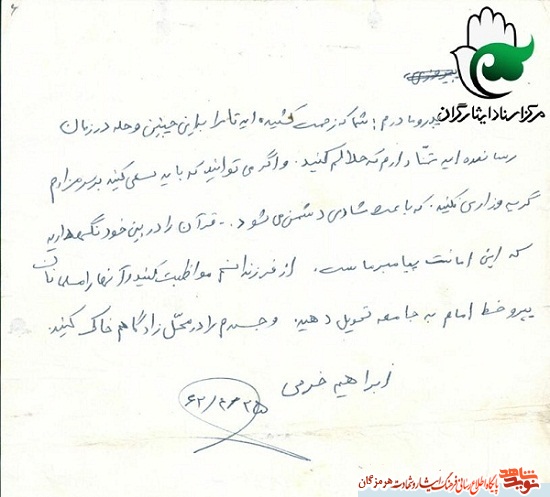 ۶
مرکز اسناد ایثارگران
پیروزی
پدر و مادرم، شما که زحمت کشیده اید تا مرا به این چنین مرحله در زمان
رسانده اید تمنا دارم که حلالم کنید. و اگر می توانید که باید سعی کنید بر سر مزارم
گریه و زاری نکنید. که باعث شادی دشمن می شود. قرآن را در بین خود نگهدارید
که این امانت پیامبر ماست. از فرزندانم مواظبت کنید و آنها را مسلمانان
پیرو خط امام به جامعه تحویل دهید. و جسدم را در محل زادگاهم خاک کنید.
ابراهیم خرمی
نوید شاهد
پایگاه اطلاع رسانی فرهنگ ایثار و شهادت هرمزگان